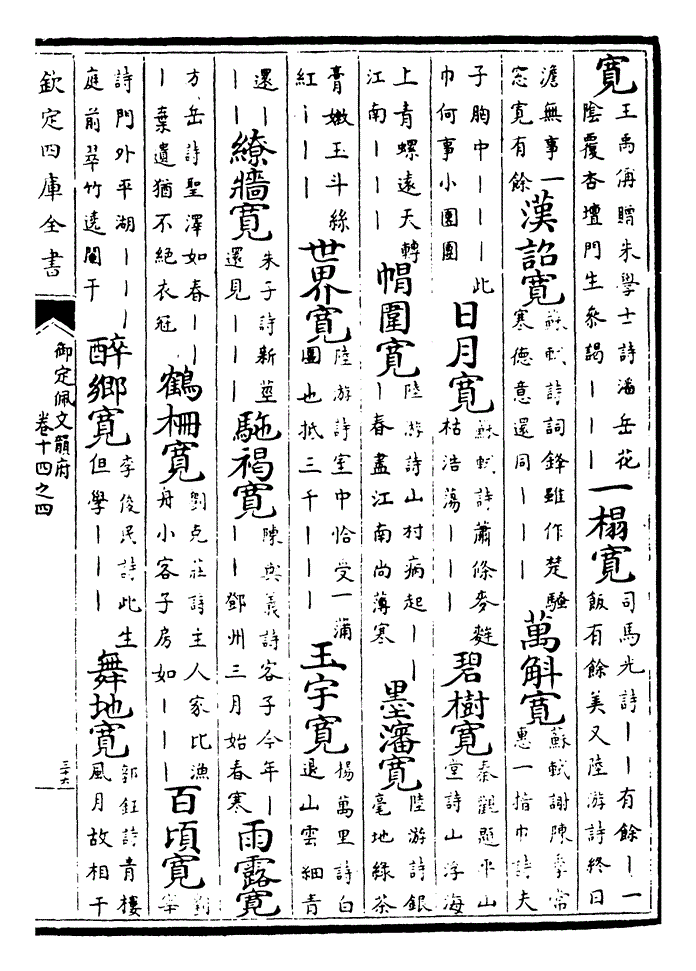 寬
王禹偁贈朱學士詩潘岳花
陰覆杏壇門生參謁｜｜｜
一榻寬
司馬光詩｜｜有餘｜一
飯有餘美又陸游詩終日
澹無事一
窓寬有餘
漢詔寬
蘇軾詩詞鋒雖作楚騷
寒德意還同｜｜｜
萬斛寬
蘇軾謝陳季常
惠一揞巾詩夫
子胸中｜｜｜此
巾何事小團團
日月寬
蘇軾詩蕭條麥麰
枯浩蕩｜｜｜
碧樹寬
秦觀題平山
堂詩山浮海
上青螺遠天轉
江南｜｜｜
帽圍寬
陸游詩山村病起｜｜
｜春盡江南尚薄寒
墨瀋寬
陸游詩銀
毫地綠茶
膏嫩玉斗絲
紅｜｜｜
世界寬
陸游詩室中恰受一蒲
團也抵三千｜｜｜
玉宇寬
楊萬里詩白
退山雲細青
還｜
｜｜
繚牆寬
朱子詩新塋
還見｜｜｜
駞褐寬
陳與義詩客子今年｜
｜｜鄧州三月始春寒
雨露寬
方岳詩聖澤如春｜｜
｜葉遺猶不絕衣冠
鶴柵寬
劉克莊詩主人家比漁
舟小客子房如｜｜｜
百頃寬
劉
詩門外平湖｜｜｜
庭前翠竹遶闌干
醉鄉寬
李俊民詩此生
但學｜｜｜
舞地寬
郭鈺詩青樓
風月故相干
欽定四庫全書
御定佩文韻府
卷十四之四
三十六